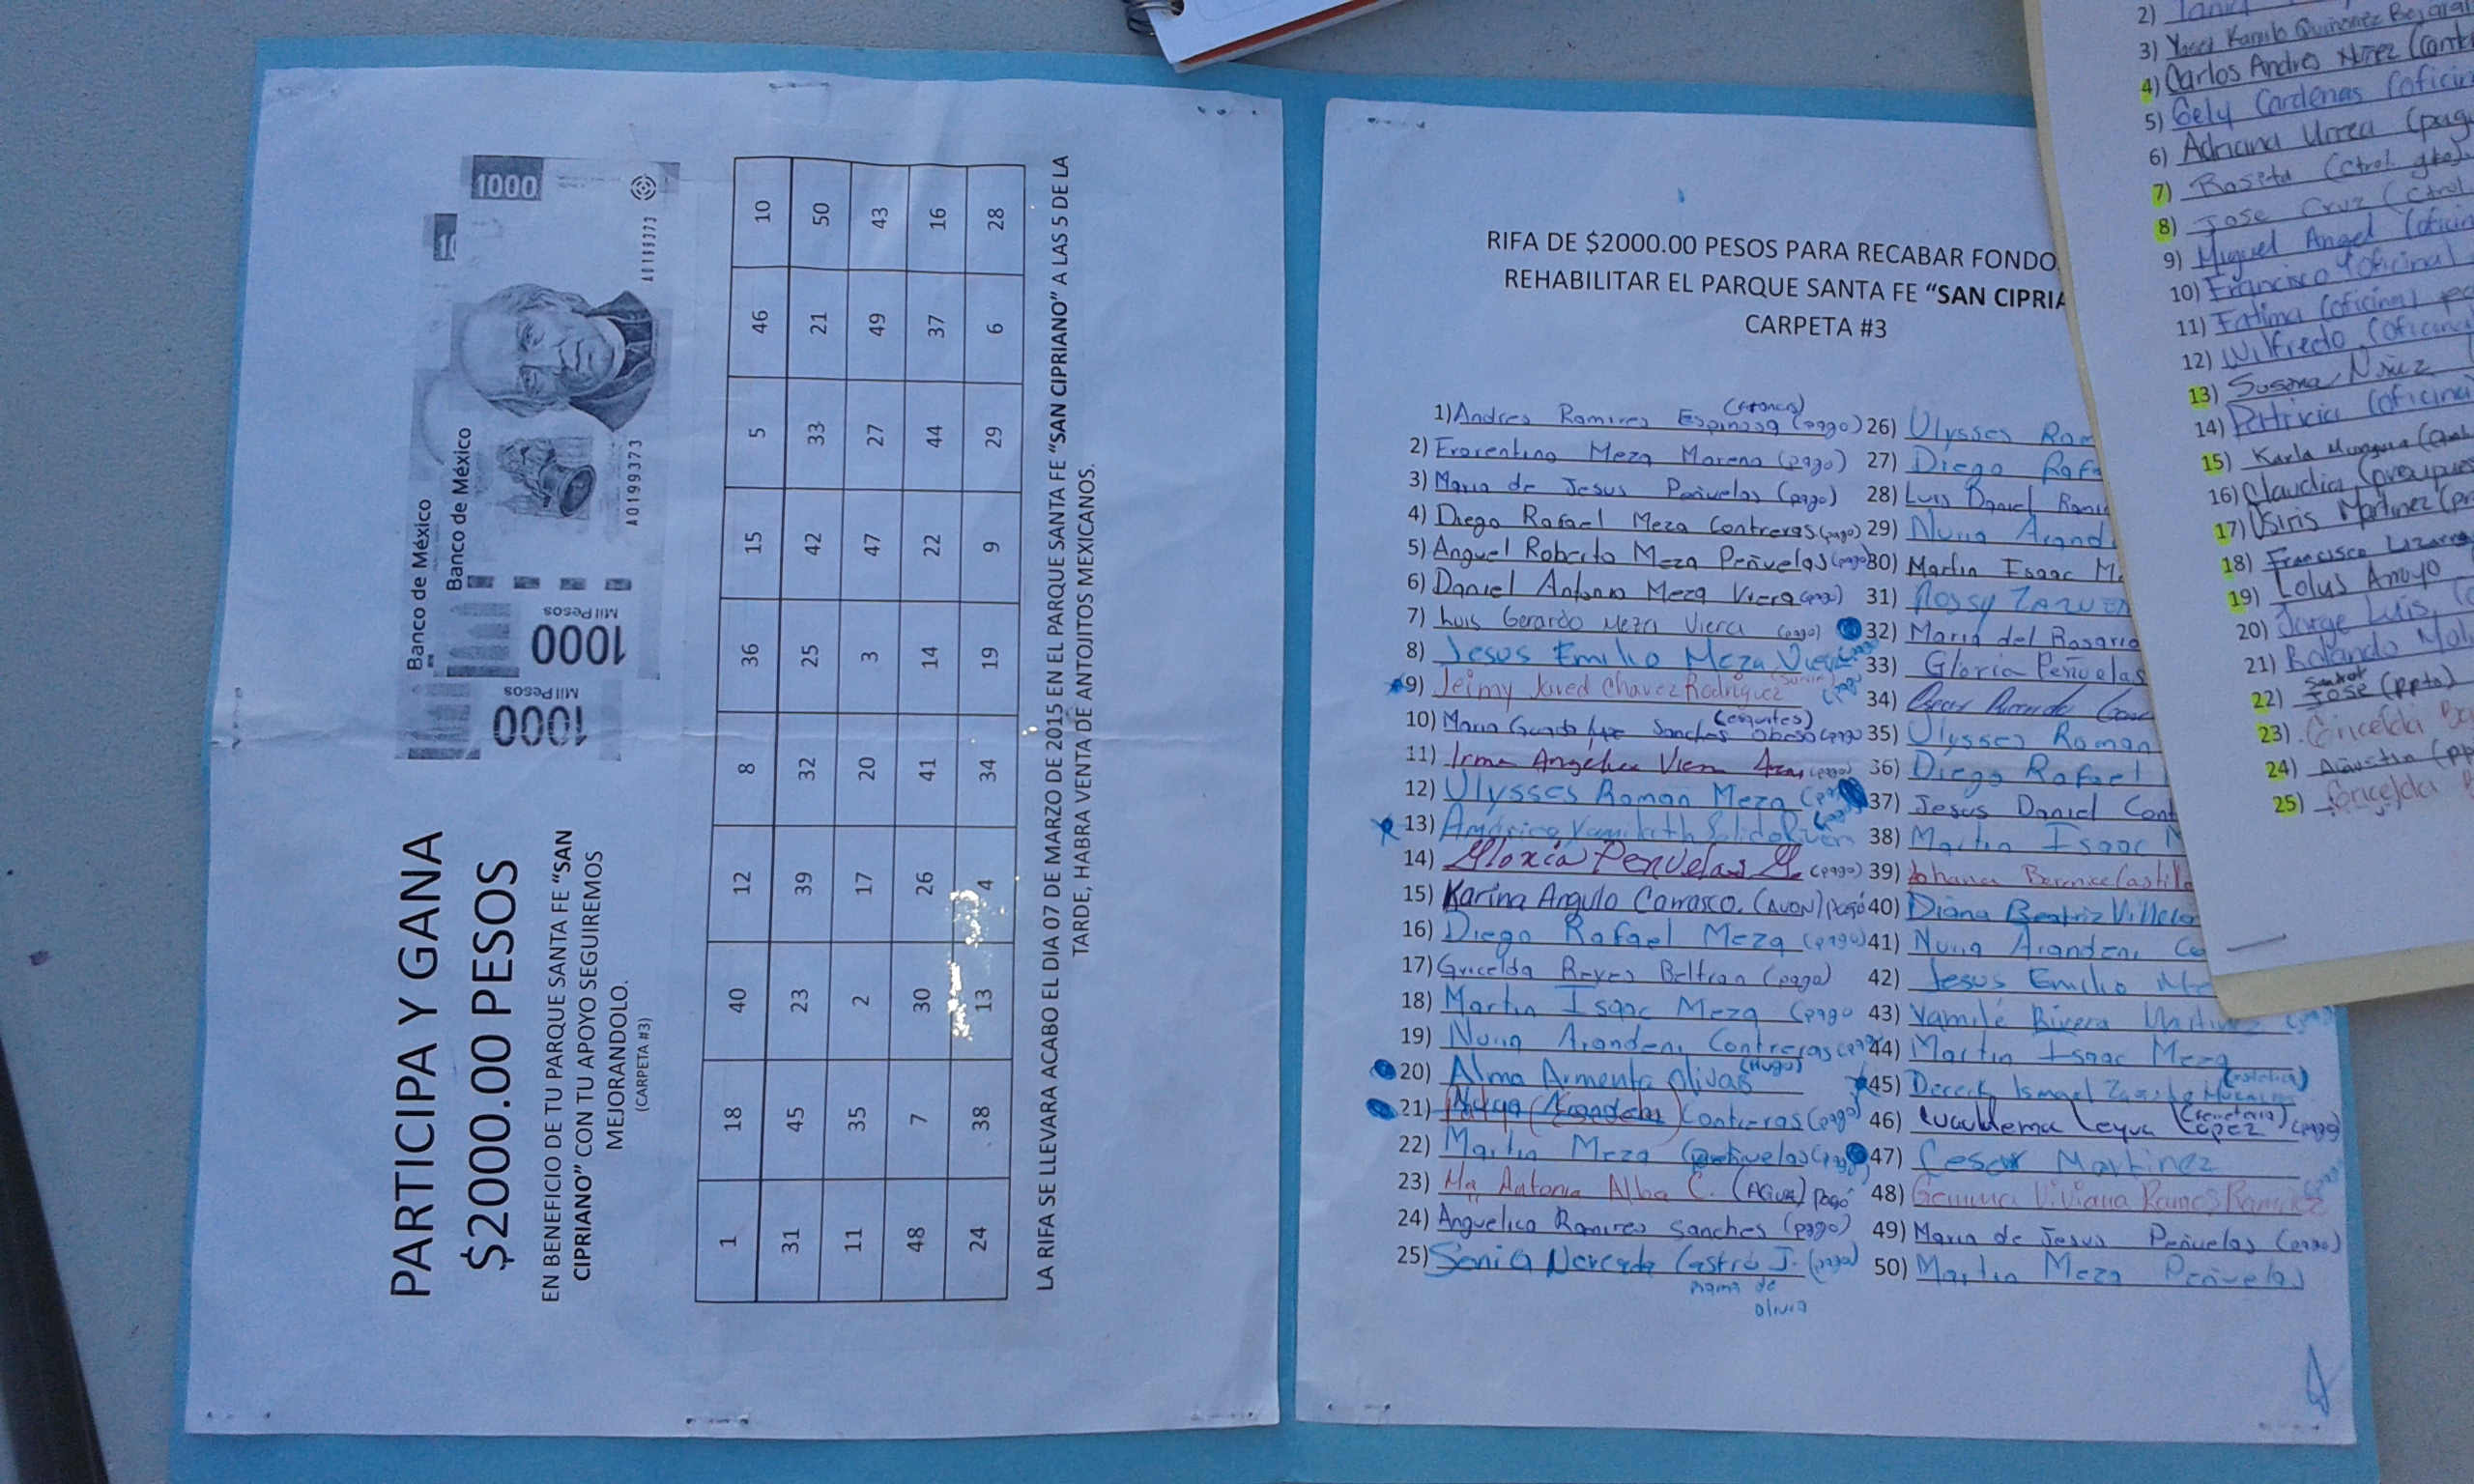 PARTICIPA Y GANA
$2000.00 PESOS
EN BENEFICIO DE TU PARQUE SANTA FE "SAN
CIPRIANO" CON TU APOYO SEGUIREMOS
MEJORANDOLO.
(CARPETA #3)
Banco de México
Banco de México
1000
1000
Mil Pesos
1000
Mil Pesos
A0199373
A0199373
1 18 40 12 8 36 15 5 46 10
31 45 23 39 32 25 42 33 21 50
11 35 2 17 20 3 47 27 49 43
48 7 30 26 41 14 22 44 37 16
24 38 13 4 34 19 9 29 6 28
LA RIFA SE LLEVARA ACABO EL DIA 07 DE MARZO DE 2015 EN EL PARQUE SANTA FE "SAN CIPRIANO" A LAS 5 DE LA
TARDE, HABRA VENTA DE ANTOJITOS MEXICANOS.
RIFA DE $2000.00 PESOS PARA RECABAR FONDO
REHABILITAR EL PARQUE SANTA FE "SAN CIPRIA
CARPETA #3
1) Andres Ramires Espinoza (pago)
2) Frorentino Meza Moreno (pago)
3) Maria de Jesus Peñuelas (pago)
4) Diego Rafael Meza Contreras (pago)
5) Anguel Roberto Meza Peñuelas (pago)
6) Daniel Antonio Meza Viera (pago)
7) Luis Gerardo Meza Viera (pago)
8) Jesus Emilio Meza Viera
9) Jeimy Jared Chavez Rodriguez
10) Maria Guadalupe Sanches Obeso (esquites) (pago
11) Irma Angelica Viera (pago)
12) Ulysses Roman Meza
13)
14) Gloria Peñuelas M. (pago)
15) Karina Angulo Carrasco. (AVON) pagó
16) Diego Rafael Meza (pago)
17) Gricelda Reyes Beltran (pago)
18) Martin Isaac Meza (pago
19) Nuna Arandeni Contreras
20) Alma Armenta Olivas (Hugo)
21) Contreras (pago)
22) Martin Meza Peñuelas
23) Ma Antonia Alba C. (AGUA) pagó
24) Anguelica Ramires Sanches (pago)
25) Sonia Castro J. (pago)
mama de
olivia
26) Ulysses Rom
27) Diego Rafa
28) Luis Daniel Rami
29) Nuna Arand
30) Martin Isaac M
31) Rossy
32) Maria del Rosario
33) Gloria Peñuelas
34) Oscar
35) Ulysses Roman
36) Diego Rafael
37) Jesus Daniel Cont
38) Martin Isaac M
39) Johana Berenice Castill
40) Diana Beatriz
41) Nuna Arandeni Co
42) Jesus Emilio Me
43) Yamilé Rivera Martinez
44) Martin Isaac Meza
45) Ismael
46) Leyva López (pago)
47) Cesar Martinez
48) Gemma Viviana Ramos Ramirez
49) Maria de Jesus Peñuelas (pago)
50) Martin Meza Peñuelas
2)
3) Kamilo Quiñonez
4) Carlos Andres Nuñez
5) Gely Cardenas (oficin
6) Adriana Urrea (pag
7) Rosita (Ctrol. gto).
8) Jose Cruz (Ctrol
9) Miguel Angel (oficin
10) Francisco (oficina)
11) Fatima (oficina)
12) Wilfredo (oficina
13) Susana Nuñez
14) Patricia (oficina
15) Karla
16) Claudia (presupues
17) Osiris Martinez (pr
18) Francisco
19) Lolus Arroyo
20) Jorge Luis
21) Rolando
22) Jose (ppto)
23)
24) Agustin (pp
25)